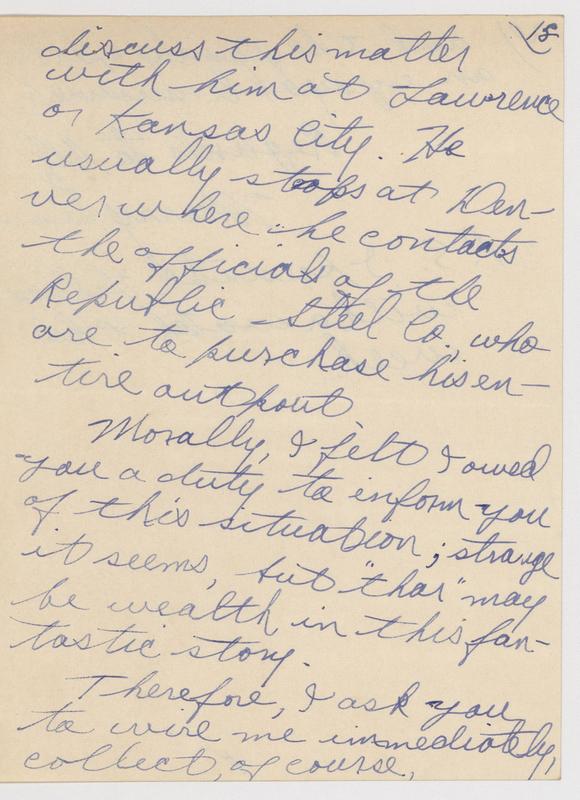 18
discuss this matter
with him at Lawrence
or Kansas City. He
usually stops at Den-
ver where he contacts
the officials of the
Republic Steel Co., who
are to purchase his en-
tire output
Morally, I felt I owed
you a duty to inform you
of this situation; strange
it seems, but "thar" may
be wealth in this fan-
tastic story.
Therefore, I ask you
to wire me immediately,
collect, of course,